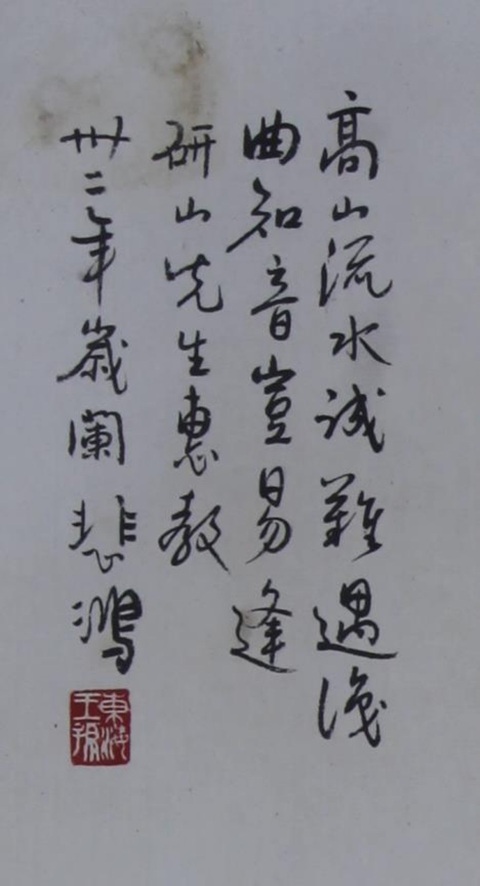 高山流水誠難遇淺
曲知音豈易逢
研山先生惠教
卅二年歲闌悲鴻
東海王孫